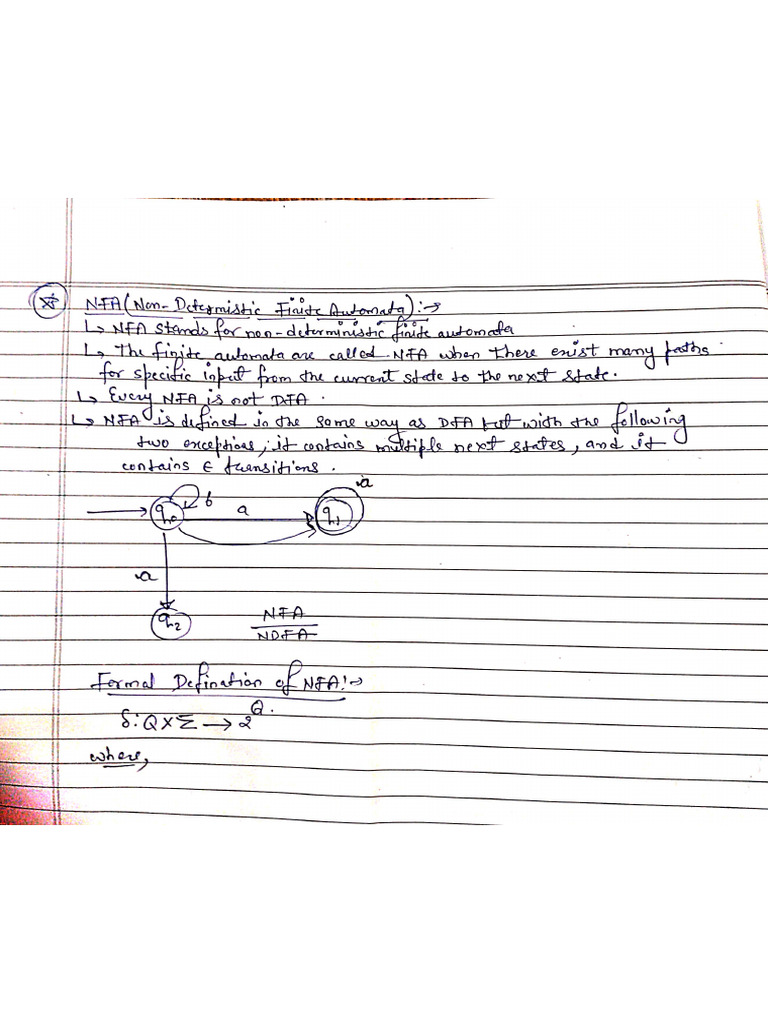 NFA (Non-Determistic Finite Automata) :→
↳ NFA stands for non-deterministic finite automata
↳ The finite automata are called NFA when there exist many paths
for specific input from the current state to the next state.
↳ Every NFA is not DFA.
↳ NFA is defined in the same way as DFA but with the following
two exceptions, it contains multiple next states, and it
contains ∈ transitions.
a
q0 b a q1
a
q2
NFA
NDFA
Formal Defination of NFA:→
δ: Q X Σ → 2^Q.
where,